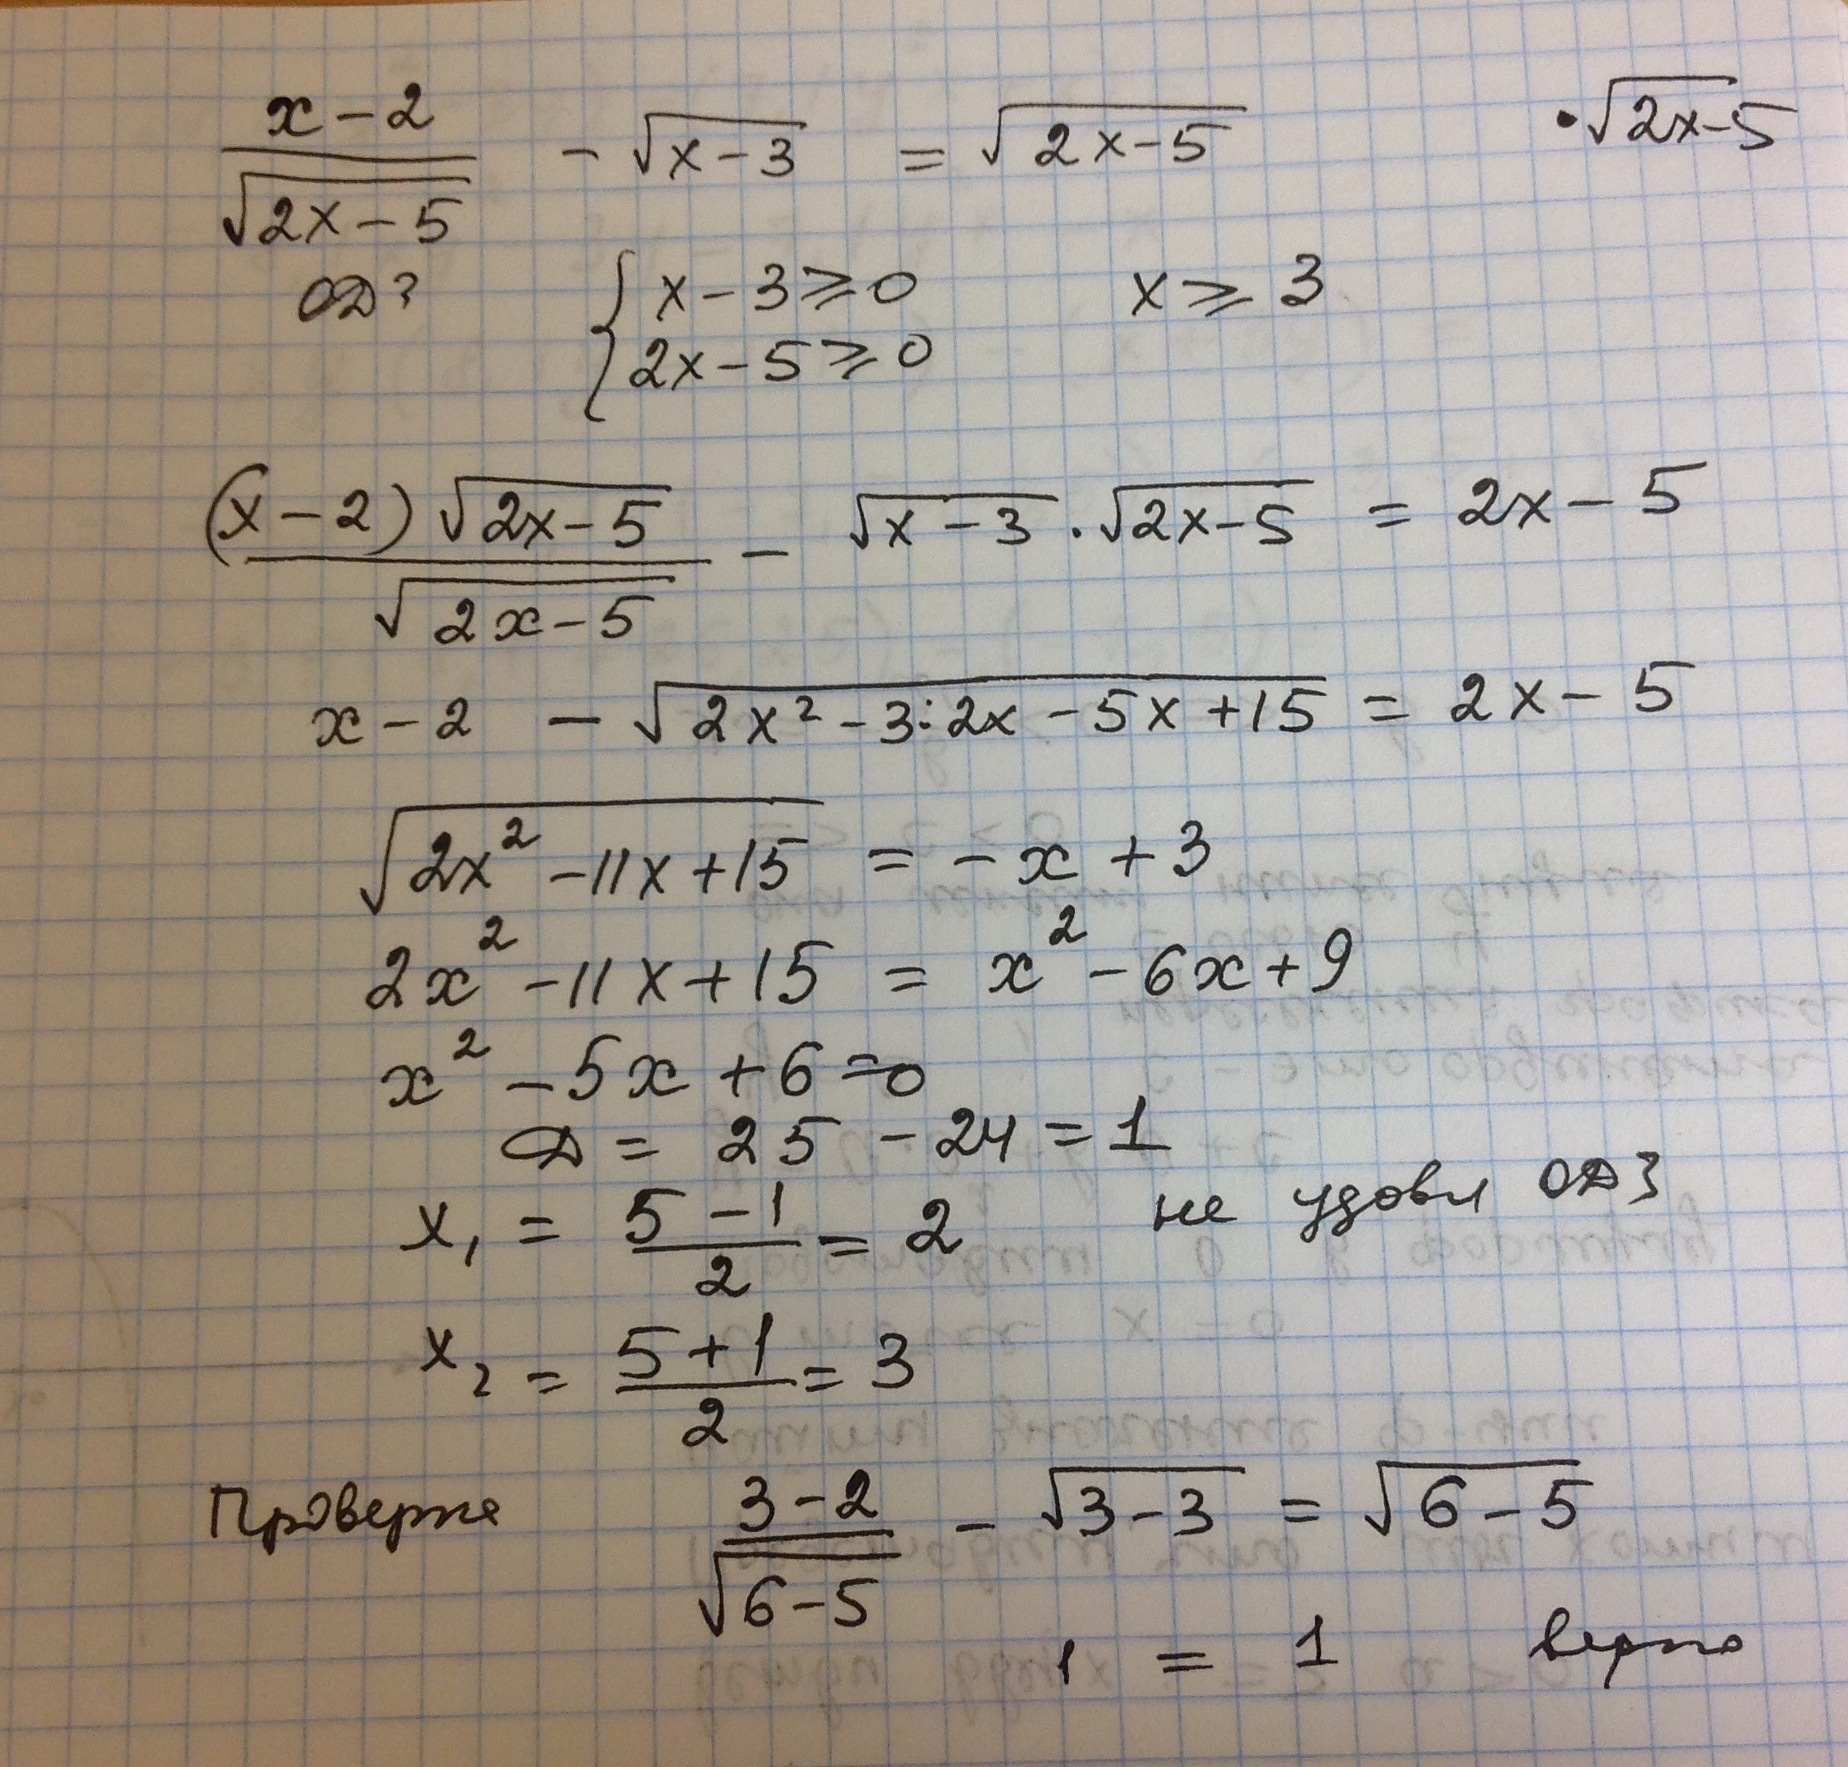 (x-2)/√(2x-5) - √(x-3) = √(2x-5) •√(2x-5)
ОДЗ { x-3⩾0 x⩾3
2x-5⩾0
(x-2)√(2x-5)/√(2x-5) - √(x-3)·√(2x-5) = 2x-5
x-2 - √(2x²-3·2x-5x+15) = 2x-5
√(2x²-11x+15) = -x+3
2x²-11x+15 = x²-6x+9
x²-5x+6=0
D = 25-24=1
x₁ = (5-1)/2 = 2 не удовл ОДЗ
x₂ = (5+1)/2 = 3
Проверка (3-2)/√(6-5) - √(3-3) = √(6-5)
1 = 1 верно